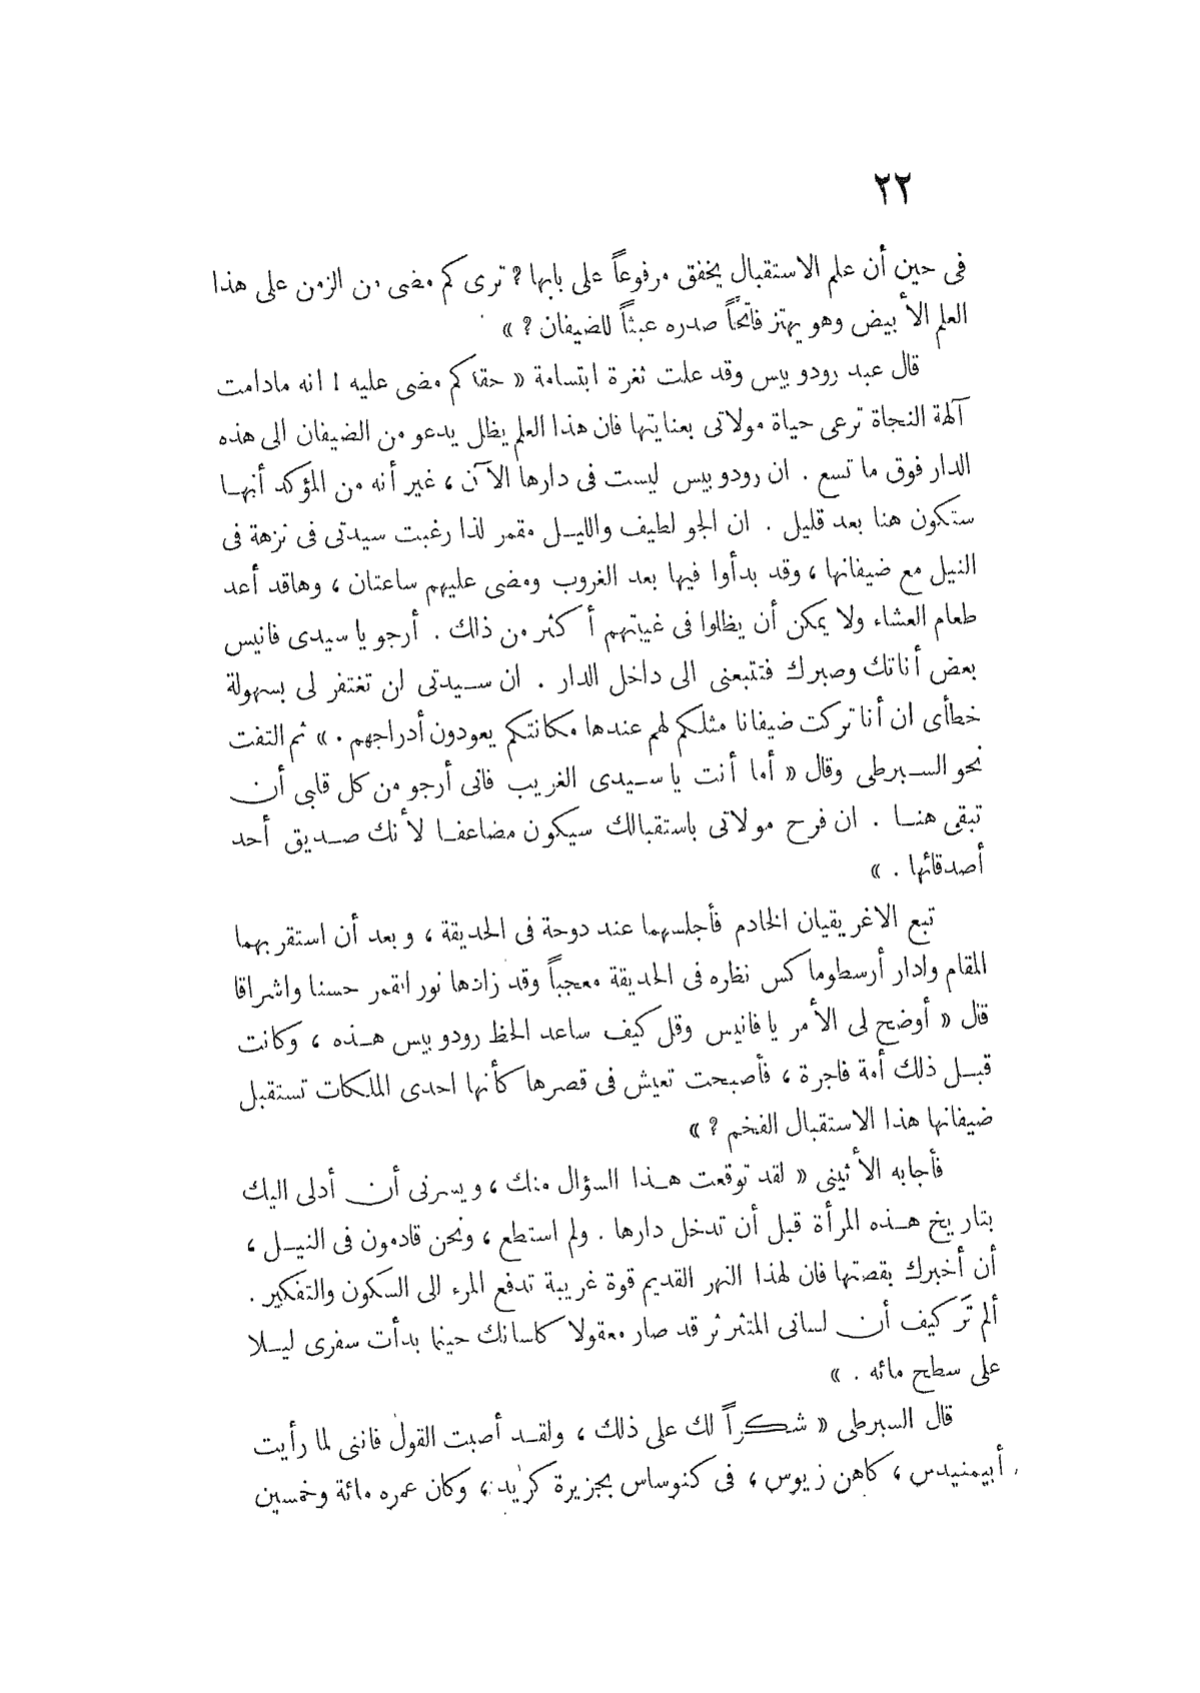 ٢٢
فى حين أن علم الاستقبال يخفق مرفوعاً على بابها ? ترى كم مضى من الزمن على هذا
العلم الأبيض وهو يهتز فاتحاً صدره عبثاً للضيفان ? »
قال عبد رودوبيس وقد علت ثغرة ابتسامة « حقا كم مضى عليه ! انه مادامت
آلهة النجاة ترعى حياة مولاتى بعنايتها فان هذا العلم يظل يدعو من الضيفان الى هذه
الدار فوق ما تسع . ان رودوبيس ليست فى دارها الآن ، غير أنه من المؤكد أنها
ستكون هنا بعد قليل . ان الجو لطيف والليل مقمر لذا رغبت سيدتى فى نزهة فى
النيل مع ضيفانها ، وقد بدأوا فيها بعد الغروب ومضى عليهم ساعتان ، وهاقد أعد
طعام العشاء ولا يمكن أن يظلوا فى غيبتهم أكثر من ذلك . أرجو يا سيدى فانيس
بعض أناتك وصبرك فتتبعنى الى داخل الدار . ان سيدتى لن تغتفر لى بسهولة
خطأى ان أنا تركت ضيفانا مثلكم لهم عندها مكانتكم يعودون أدراجهم . » ثم التفت
نحو السبرطى وقال « أما أنت يا سيدى الغريب فانى أرجو من كل قلبى أن
تبقى هنا . ان فرح مولاتى باستقبالك سيكون مضاعفا لأنك صديق أحد
أصدقائها . »
تبع الاغريقيان الخادم فأجلسهما عند دوحة فى الحديقة ، وبعد أن استقر بهما
المقام وادار أرسطوماكس نظره فى الحديقة معجباً وقد زادها نور القمر حسنا واشراقا
قال « أوضح لى الأمر يا فانيس وقل كيف ساعد الحظ رودوبيس هذه ، وكانت
قبل ذلك أمة فاجرة ، فأصبحت تعيش فى قصرها كأنها احدى الملكات تستقبل
ضيفانها هذا الاستقبال الفخم ? »
فأجابه الأثينى « لقد توقعت هذا السؤال منك ، ويسرنى أن أدلى اليك
بتاريخ هذه المرأة قبل أن تدخل دارها . ولم استطع ، ونحن قادمون فى النيل ،
أن أخبرك بقصتها فان لهذا النهر القديم قوة غريبة تدفع المرء الى السكون والتفكير .
ألم تَر كيف أن لسانى المثرثر قد صار معقولا كلسانك حينما بدأت سفرى ليلا
على سطح مائه . »
قال السبرطى « شكراً لك على ذلك ، ولقد أصبت القول فاننى لما رأيت
أبيمنيدس ، كاهن زيوس ، فى كنوساس بجزيرة كريد ، وكان عمره مائة وخمسين